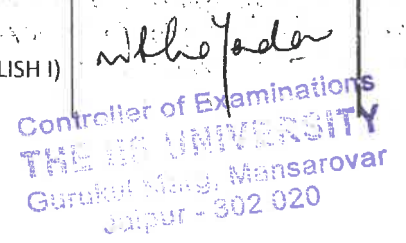 LISH I)
Controller of Examinations
THE IIS UNIVERSITY
Gurukul Marg, Mansarovar
Jaipur - 302 020